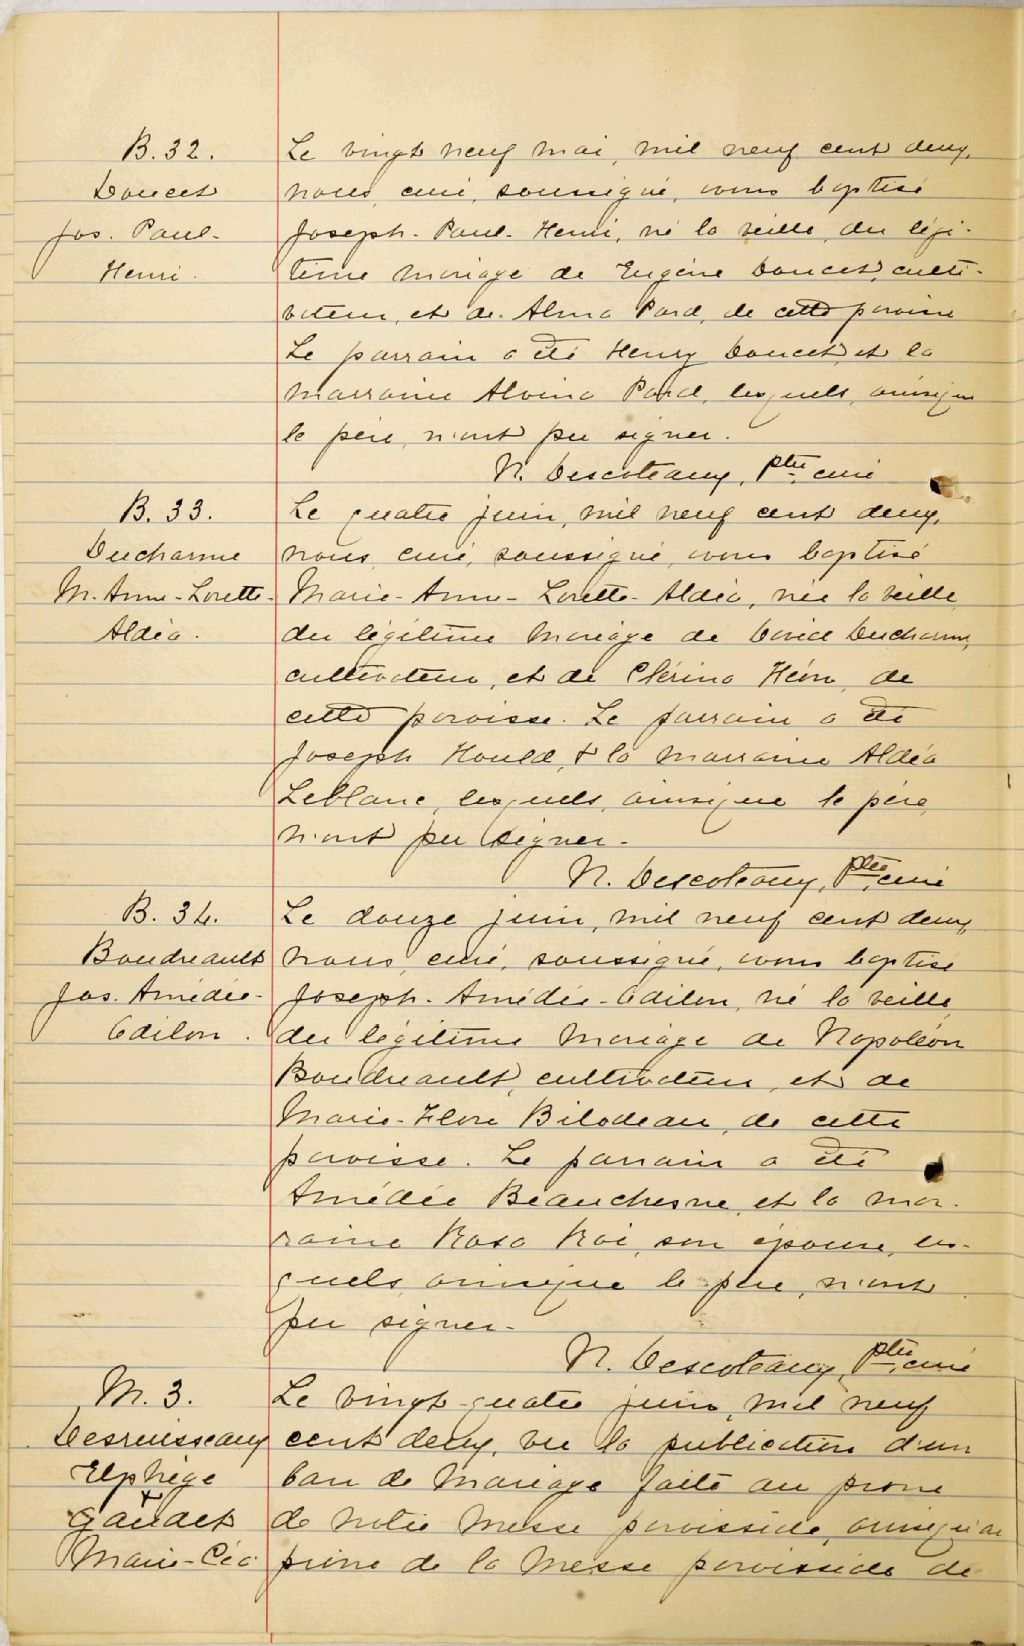 B. 32.
Doucet
Jos. Paul-
Henri.
Le vingt neuf mai, mil neuf cent deux,
nous, curé, soussigné, avons baptisé
Joseph-Paul-Henri, né la veille, du légi-
time mariage de Eugène Doucet, culti-
vateur, et de Alma Pard, de cette paroisse
Le parrain a été Henry Doucet, et la
marraine Alvina Pard, lesquels, ainsique
le père, n'ont pu signer.
N. Descoteaux, Ptre curé
B. 33.
Ducharme
M. Anne-Lorette-
Aldéa.
Le quatre juin, mil neuf cent deux,
nous, curé, soussigné, avons baptisé
Marie-Anne-Lorette-Aldéa, née la veille,
du légitime mariage de David Ducharme,
cultivateur, et de Clérina Héon, de
cette paroisse. Le parrain a été
Joseph Hould, & la marraine Aldéa
Leblanc, lesquels, ainsique le père,
n'ont pu signer.
N. Descoteaux, Ptre, curé
B. 34.
Boudreault
Jos. Amédée-
Odilon.
Le douze juin, mil neuf cent deux,
nous, curé, soussigné, avons baptisé
Joseph-Amédée-Odilon, né la veille,
du légitime mariage de Napoléon
Boudreault, cultivateur, et de
Marie-Flore Bilodeau, de cette
paroisse. Le parrain a été
Amédée Beauchesne, et la mar-
raine Rosa Roi, son épouse, les-
quels, ainsique le père, n'ont
pu signer.
N. Descoteaux, Ptre, curé
M. 3.
Desruisseaux
Elphège
&
Gaudet
Marie-Céa
Le vingt-quatre juin, mil neuf
cent deux, vu la publication d'un
ban de mariage faite au prone
de notre messe paroissiale, ainsiqu'au
prône de la messe paroissiale de